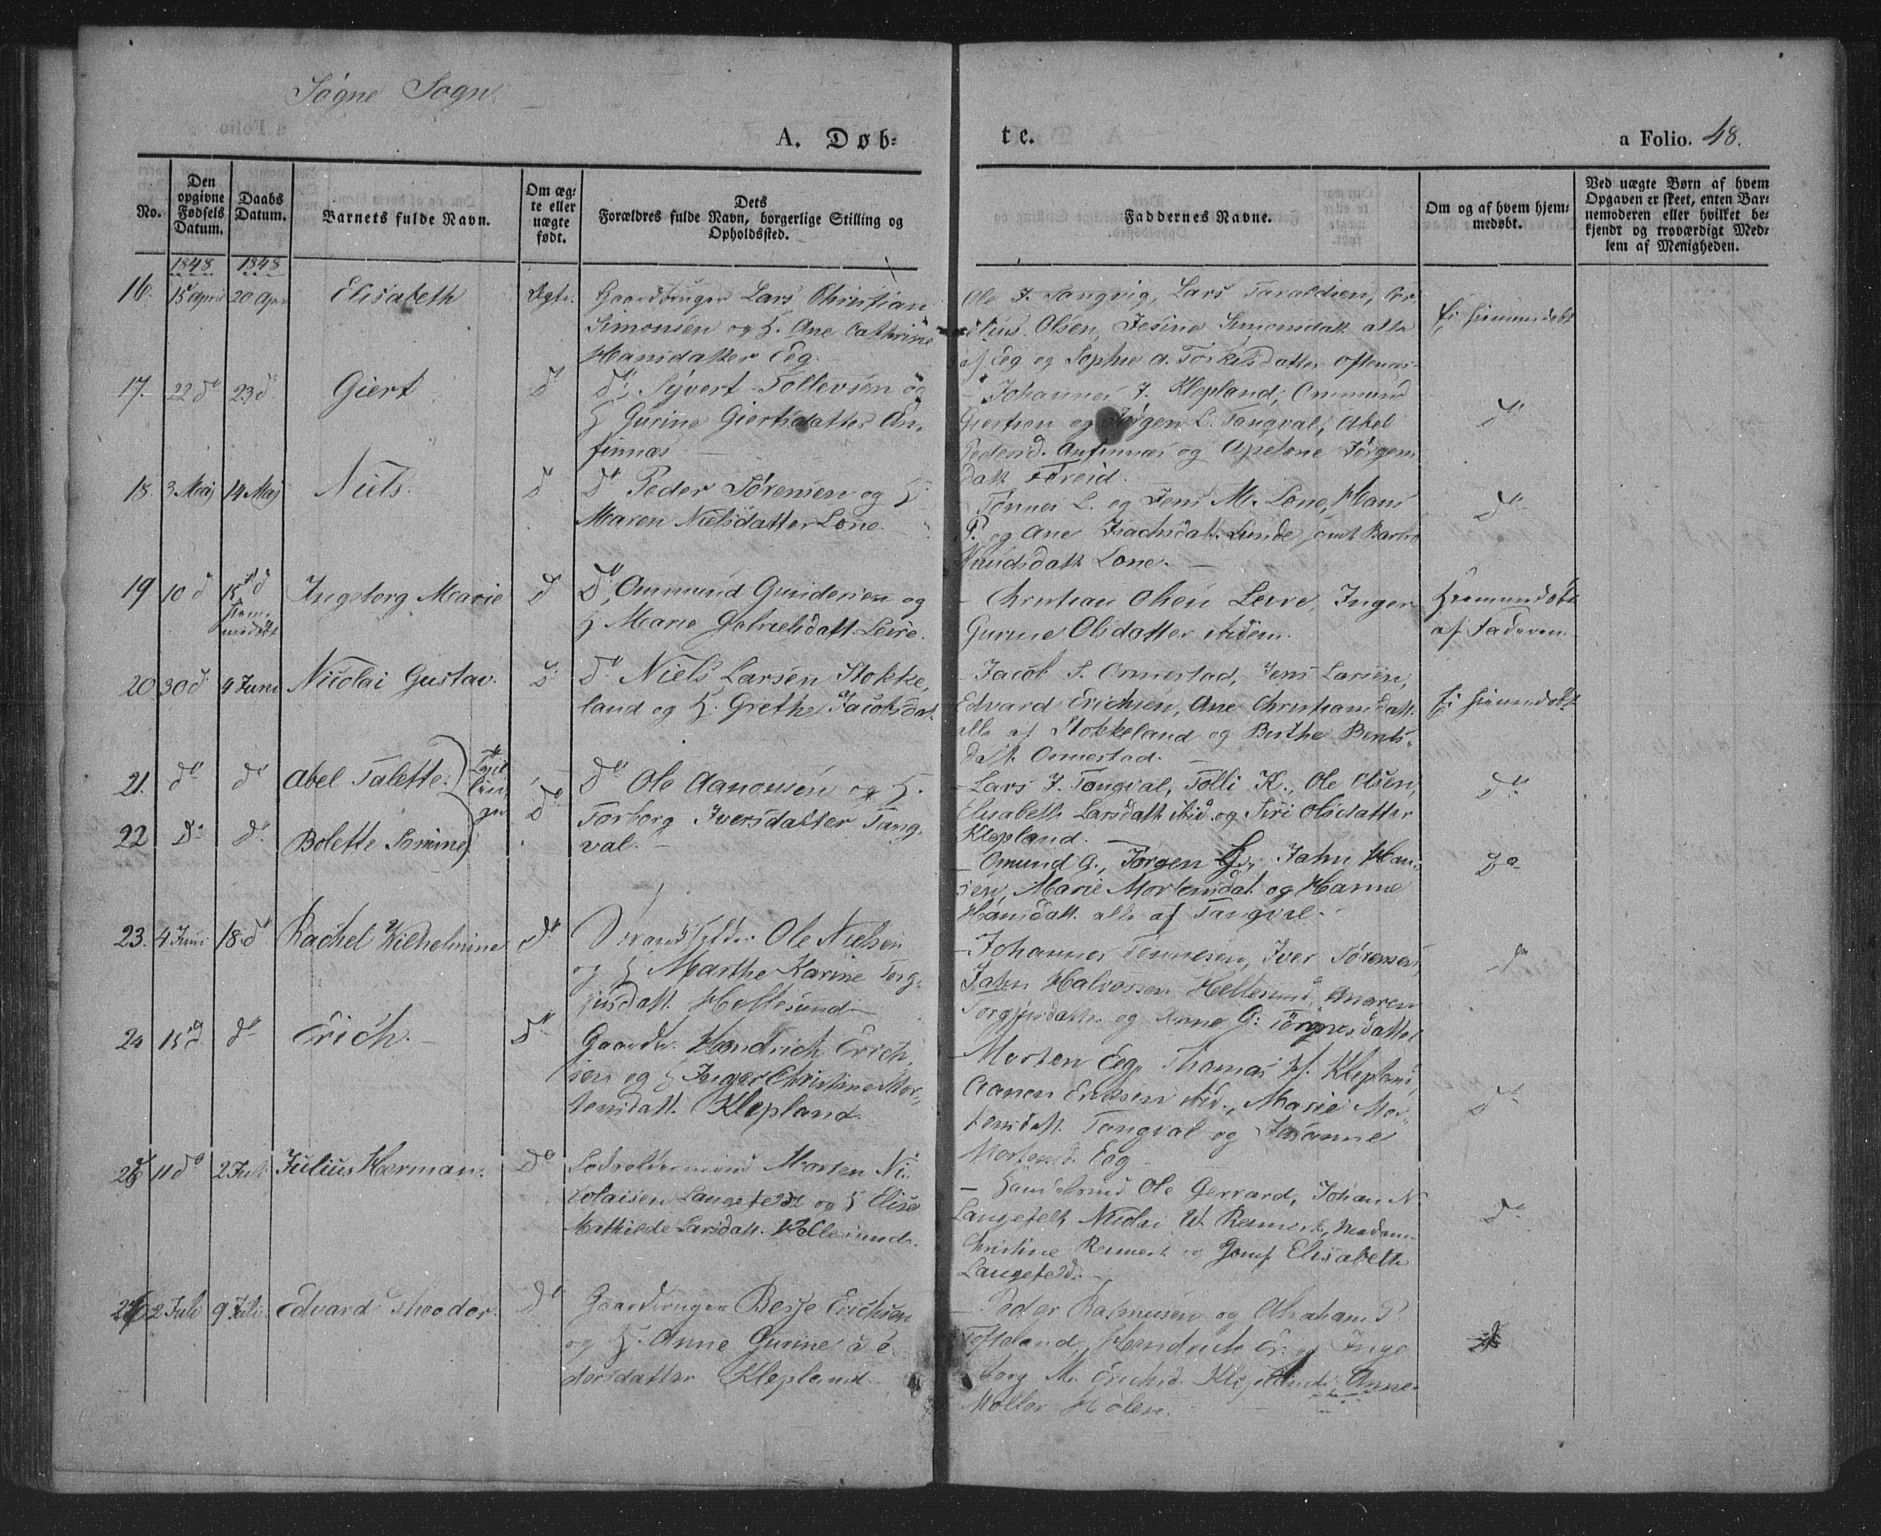 Søgne Sogn.
A. Døb-
te.
a Folio. 48.
No.
Den opgivne Fødsels Datum.
Daabs Datum.
Barnets fulde Navn.
Om æg- te eller uægte født.
Dets Forældres fulde Navn, borgerlige Stilling og Opholdssted.
Faddernes Navne.
Om og af hvem hjem- medøbt.
Ved uægte Børn af hvem Opgaven er skeet, enten Bar- nemoderen eller hvilket be- kjendt og troværdigt Med- lem af Menigheden.
1848 1848
16. 15 April 20 Apr Elisabeth Ægte
Gaardbruger Lars Christian
Simonsen og H. Ane Cathrine
Hansdatter Eeg.
Ole J. Tangvig, Lars Taraldsen,
Olsen, Jesine Simonsdatt alle
af Eeg og Sophie a. Torkelsdatter Oftenæs
Ei hjemmedøbt
17. 22 d° 23 d° Giert d°
d° Syvert Tollevsen og
H Gurine Giertsdatter An-
finnæs
Johannes J. Klepland, Ommund
Giertsen og Jørgen L. Tangval, Abel
Pedersd. Anfinnæs og Apelone Jørgens
datt Føreid.
d°
18. 3 Maj 14 Maj Niels. d°
d° Peder Sørensen og H.
Maren Nielsdatter Lone
Tønnes L. og Jens M. Lone, Hans
P. og Ane Isachsdatt. Lunde samt Barbro
Knudsdatt Lone.
d°
19 10 d° 15 d° hjem- medøbt Ingeborg Marie d°
d° Ommund Gundersen og
H Marie Gabrielsdatt. Leire.
Christian Olsen Leire, Inger
Gurine Olsdatter ibidem.
Hjemmedøbt
af Faderen
20 30 d° 4 Juni Nicolai Gustav. d°
d° Niels Larsen Stokke-
land og H. Grethe Jacobsdat.
Jacob S. Ormestad, Jens Larsen,
Edvard Erichsen, Ane Christiansdatt.
alle af Stokkeland og Berthe Bents-
datt. Ormestad.
Ei hjemmedøbt
21. d° d° Abel Talette. Tvil- lin- ger
d° d° Ole Aanonsen og H.
Torborg Iversdatter Tang-
val.
Lars J. Tangval, Tolli K., Ole Olsen,
Elisabeth Larsdatt ibid. og Siri Olsdatter
Klepland.
d°
22 d° d° Bolette Tomine
Omund G., Jørgen G., Jahn Han-
sen, Marie Mortensdat og Hanne
Hansdatt. alle af Tangval.
d°
23. 4 Juni 18 d° Rachel Wilhelmine d°
Strandsidder Ole Nielsen
og H Marthe Karine Torg-
jusdatt. Hellesund
Johannes Tønnesen, Iver Sørensen,
Jahn Halvorsen Hellesund, Maren
Torgjusdatter og Anne G. Torgiusdatter
d°
24 15 d° d° Erich. d°
Gaardbr. Hendrich Erich-
sen og H Inger Christine Mor-
tensdatt. Klepland.
Morten Eeg, Thomas H. Klepland,
Aanon Erichsen ibid., Marie Mor-
tensdatt. Tangval og Susanne
Mortensd. Eeg
d°
25 11 d° 2 Juli Julius Herman. d°
Lodsoldermand Morten Ni-
colaisen Langefeldt og H Elise
Mathilde Larsdatt. Hellesund.
Handelsmd Ole Gerrard, Johan N.
Langefelt, Nicolai W. Reimert, Madam
Christine Reimert og Jomf Elisabeth
Langefeldt.
d°
26 2 Juli 9 Juli Edvard Theodor. d°
Gaardbruger Berje Erichsen
og H. Anne Gurine Pe-
dersdatter Klepland.
Peder Rasmusen og Abraham P.
Tofteland, Hendrich Er. og Inge-
borg M. Erichsd. Klepland, Anne
Møller Hølen.
d°